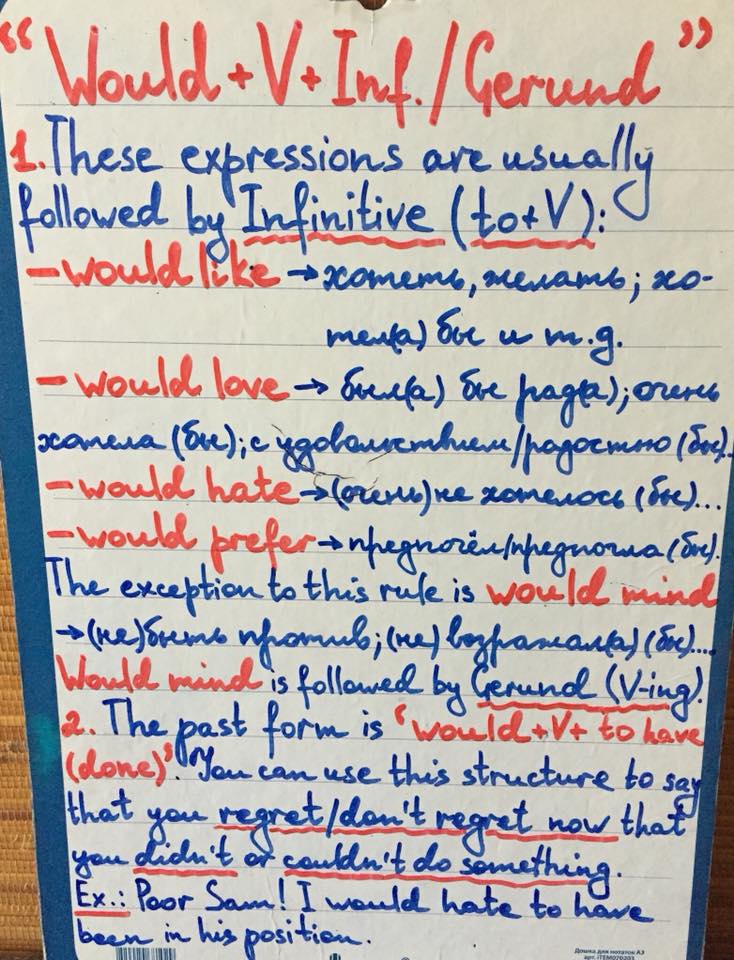 “Would + V + Inf./Gerund”
1. These expressions are usually
followed by Infinitive (to+V):
- would like → хотеть, желать; хо-
тел(а) бы и т.д.
- would love → был(а) бы рад(а); очень
хотела (бы); с удовольствием/радостно (бы).
- would hate → (очень) не хотелось (бы)...
- would prefer → предпочёл/предпочла (бы).
The exception to this rule is would mind
→ (не) быть против; (не) возражал(а) (бы)...
Would mind is followed by Gerund (V-ing).
2. The past form is “would+V+ to have
(done)”. You can use this structure to say
that you regret/don't regret now that
you didn't or couldn't do something.
Ex.: Poor Sam! I would hate to have
been in his position.
Дошка для нотаток А3
арт. ITEM070203